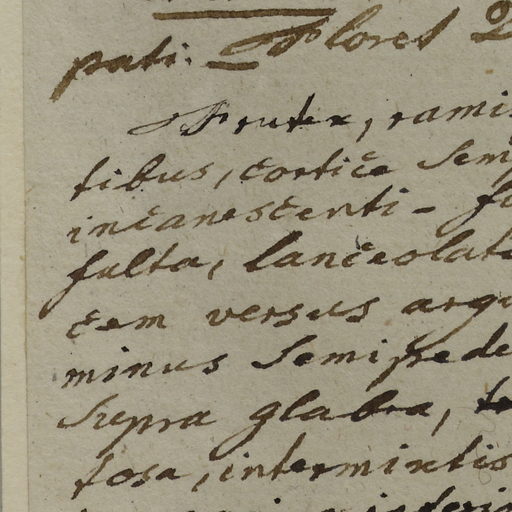 pati. Floret
Frutex, rami
tibus, cortice sem
incanescenti-
fulta, lanceolat
cem versus arg
minus semipede
supra glabra,
tosa, intermixtis